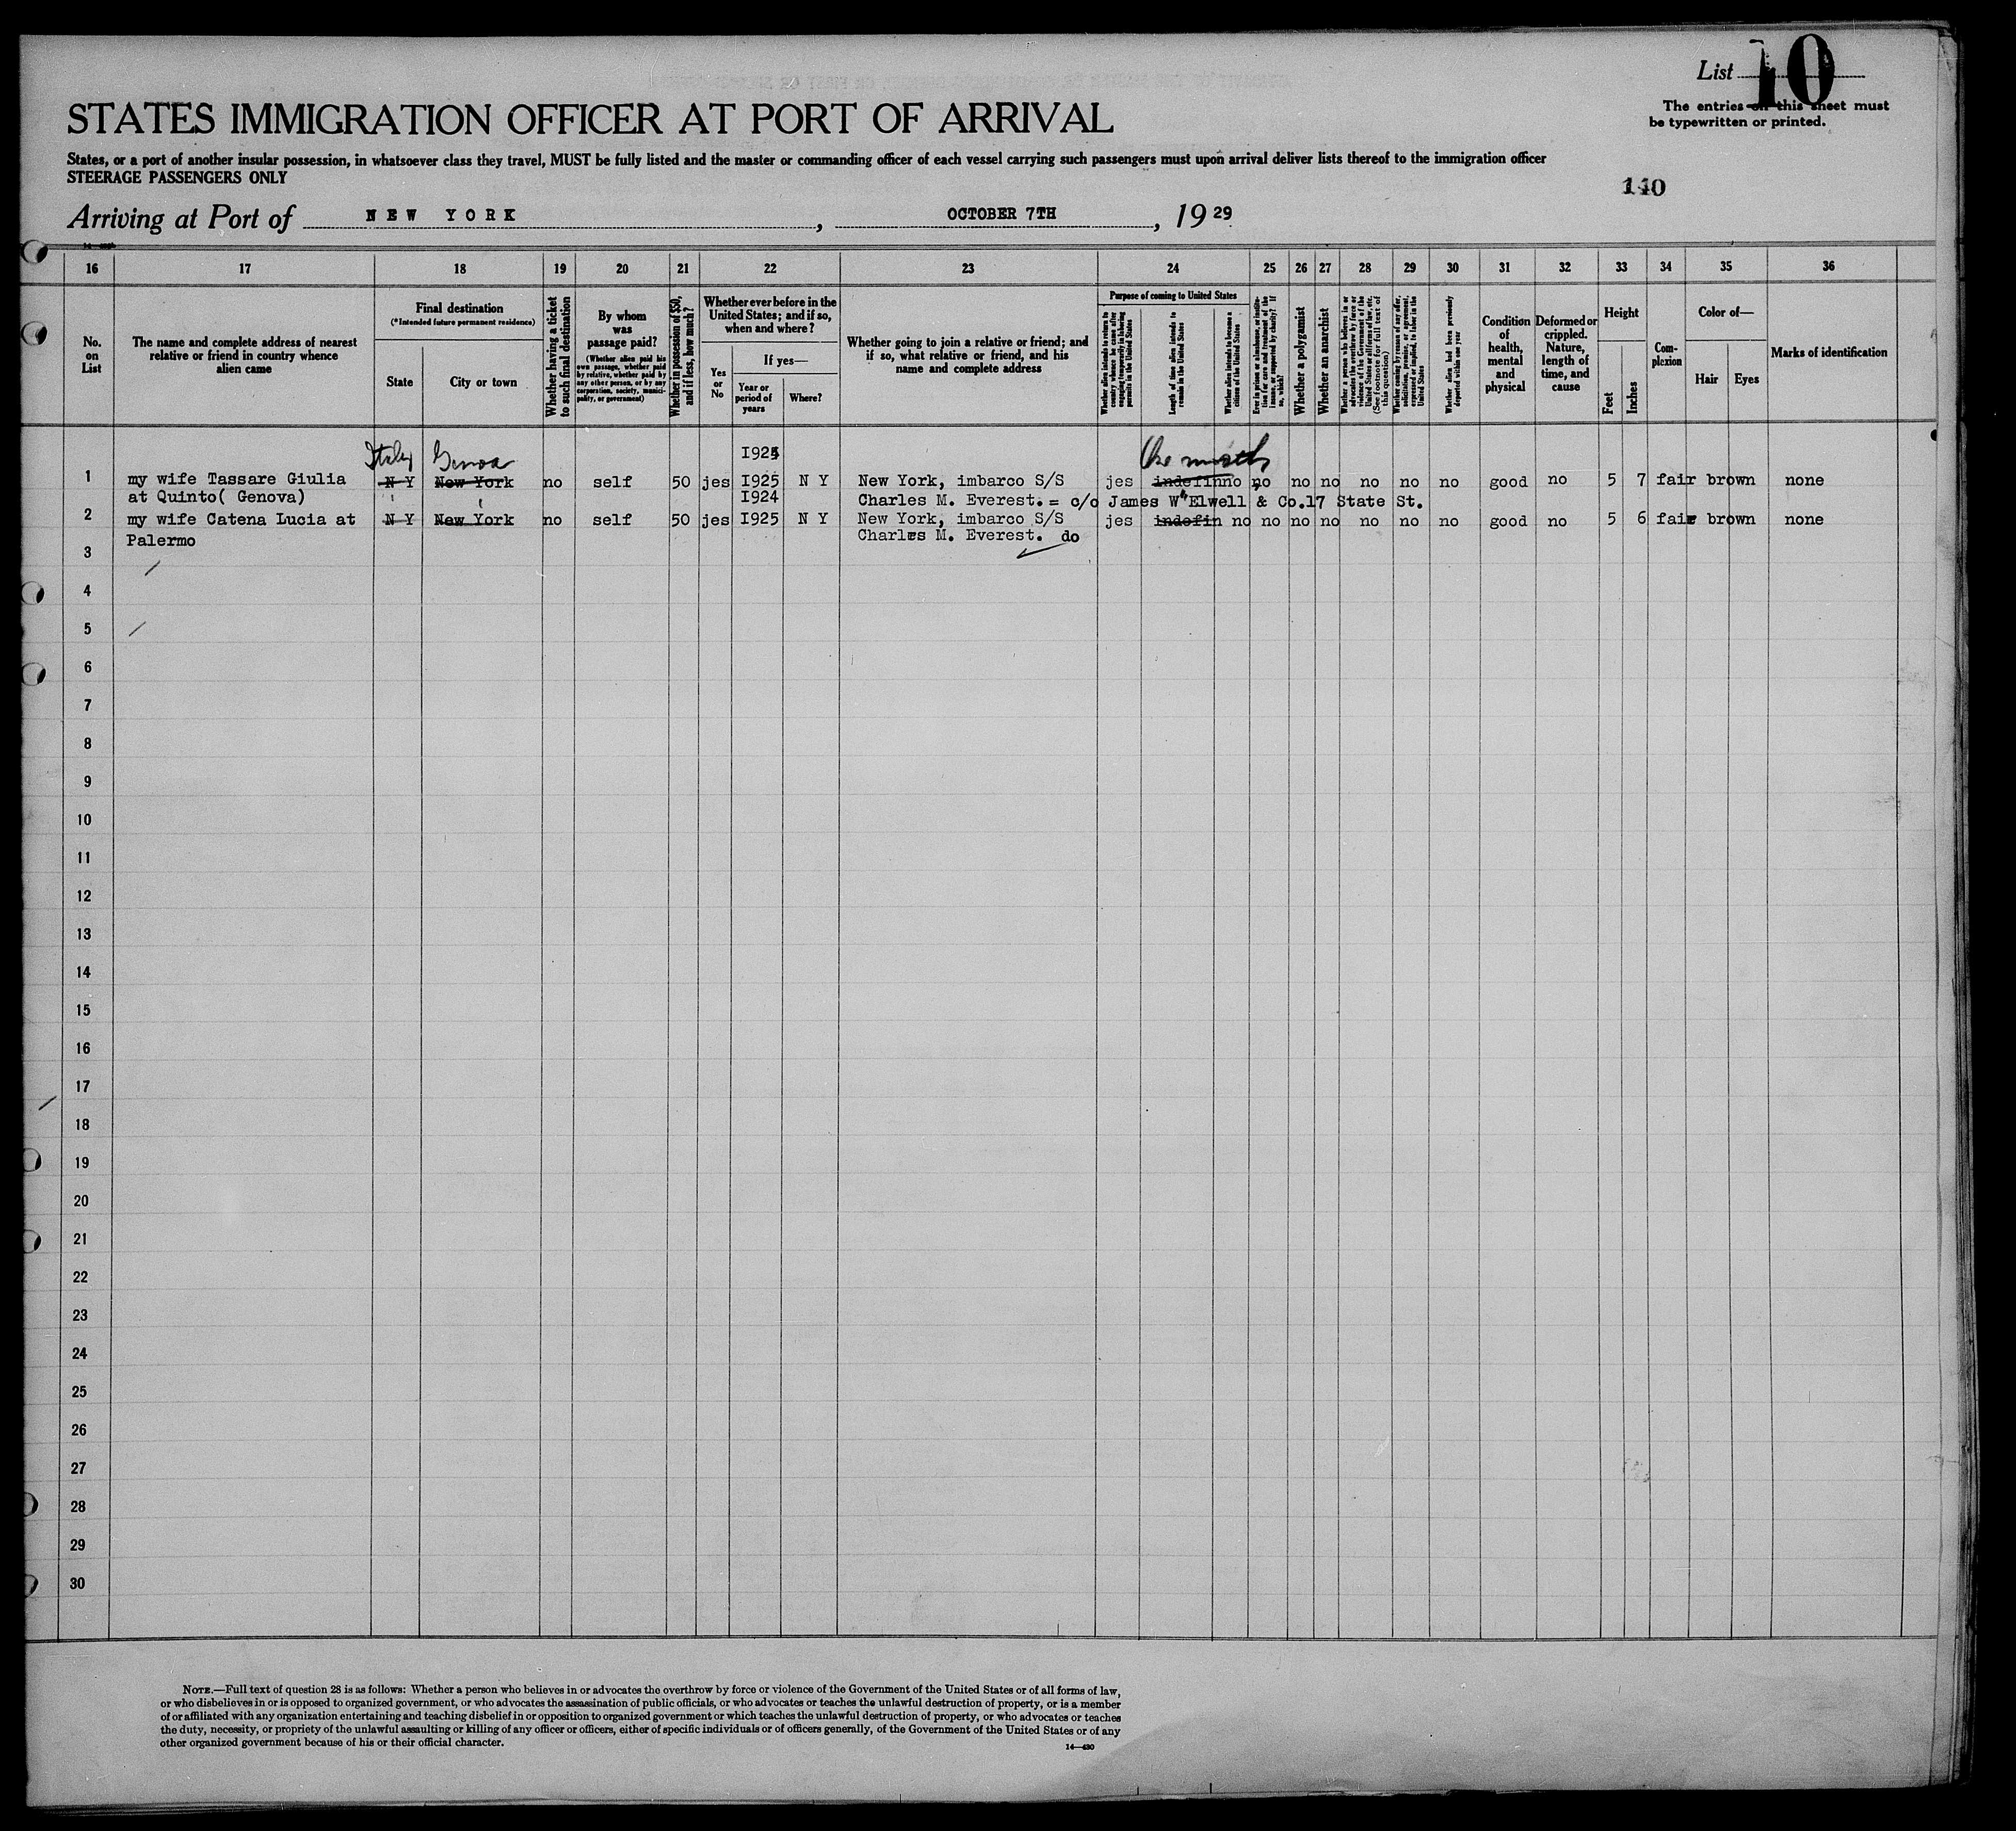 List 10
The entries on this sheet must
be typewritten or printed.
STATES IMMIGRATION OFFICER AT PORT OF ARRIVAL
States, or a port of another insular possession, in whatsoever class they travel, MUST be fully listed and the master or commanding officer of each vessel carrying such passengers must upon arrival deliver lists thereof to the immigration officer
STEERAGE PASSENGERS ONLY
Arriving at Port of NEW YORK, OCTOBER 7TH, 19 29
16 17 18 19 20 21 22 23 24 25 26 27 28 29 30 31 32 33 34 35 36
No.
on
List
The name and complete address of nearest
relative or friend in country whence
alien came
Final destination
(*Intended future permanent residence)
State
City or town
Whether having a ticket
to such final destination
By whom
was
passage paid?
(Whether alien paid his
own passage, whether paid
by relative, whether paid by
any other person, or by any
corporation, society, munici-
pality, or government)
Whether in possession of $50,
and if less, how much?
Whether ever before in the
United States; and if so,
when and where?
Yes
or
No
If yes—
Year or
period of
years
Where?
Whether going to join a relative or friend; and
if so, what relative or friend, and his
name and complete address
Purpose of coming to United States
Whether alien intends to return to
country whence he came after
engaging temporarily in laboring
pursuits in the United States
Length of time alien intends to
remain in the United States
Whether alien intends to become a
citizen of the United States
Ever in prison or almshouse, or institu-
tion for care and treatment of the
insane, or supported by charity? If
so, which?
Whether a polygamist
Whether an anarchist
Whether a person who believes in or
advocates the overthrow by force or
violence of the Government of the
United States or all forms of law, etc.
(See footnote for full text of
this question)
Whether coming by reason of any offer,
solicitation, promise, or agreement,
expressed or implied, to labor in the
United States
Whether alien had been previously
deported within one year
Condition
of
health,
mental
and
physical
Deformed or
crippled.
Nature,
length of
time, and
cause
Height
Feet
Inches
Com-
plexion
Color of—
Hair
Eyes
Marks of identification
Italy Genoa 1925 One month
1 my wife Tassare Giulia N Y New York no self 50 jes I925 N Y New York, imbarco S/S jes indefin no no no no no no no good no 5 7 fair brown none
at Quinto( Genova) I924 Charles M. Everest. = c/o James W Elwell & Co.17 State St.
2 my wife Catena Lucia at N Y New York no self 50 jes I925 N Y New York, imbarco S/S jes indefin no no no no no no no good no 5 6 fair brown none
Palermo Charles M. Everest. do
3
4
5
6
7
8
9
10
11
12
13
14
15
16
17
18
19
20
21
22
23
24
25
26
27
28
29
30
NOTE.—Full text of question 28 is as follows: Whether a person who believes in or advocates the overthrow by force or violence of the Government of the United States or of all forms of law,
or who disbelieves in or is opposed to organized government, or who advocates the assassination of public officials, or who advocates or teaches the unlawful destruction of property, or is a member
of or affiliated with any organization entertaining and teaching disbelief in or opposition to organized government or which teaches the unlawful destruction of property, or who advocates or teaches
the duty, necessity, or propriety of the unlawful assaulting or killing of any officer or officers, either of specific individuals or of officers generally, of the Government of the United States or of any
other organized government because of his or their official character.
14—430